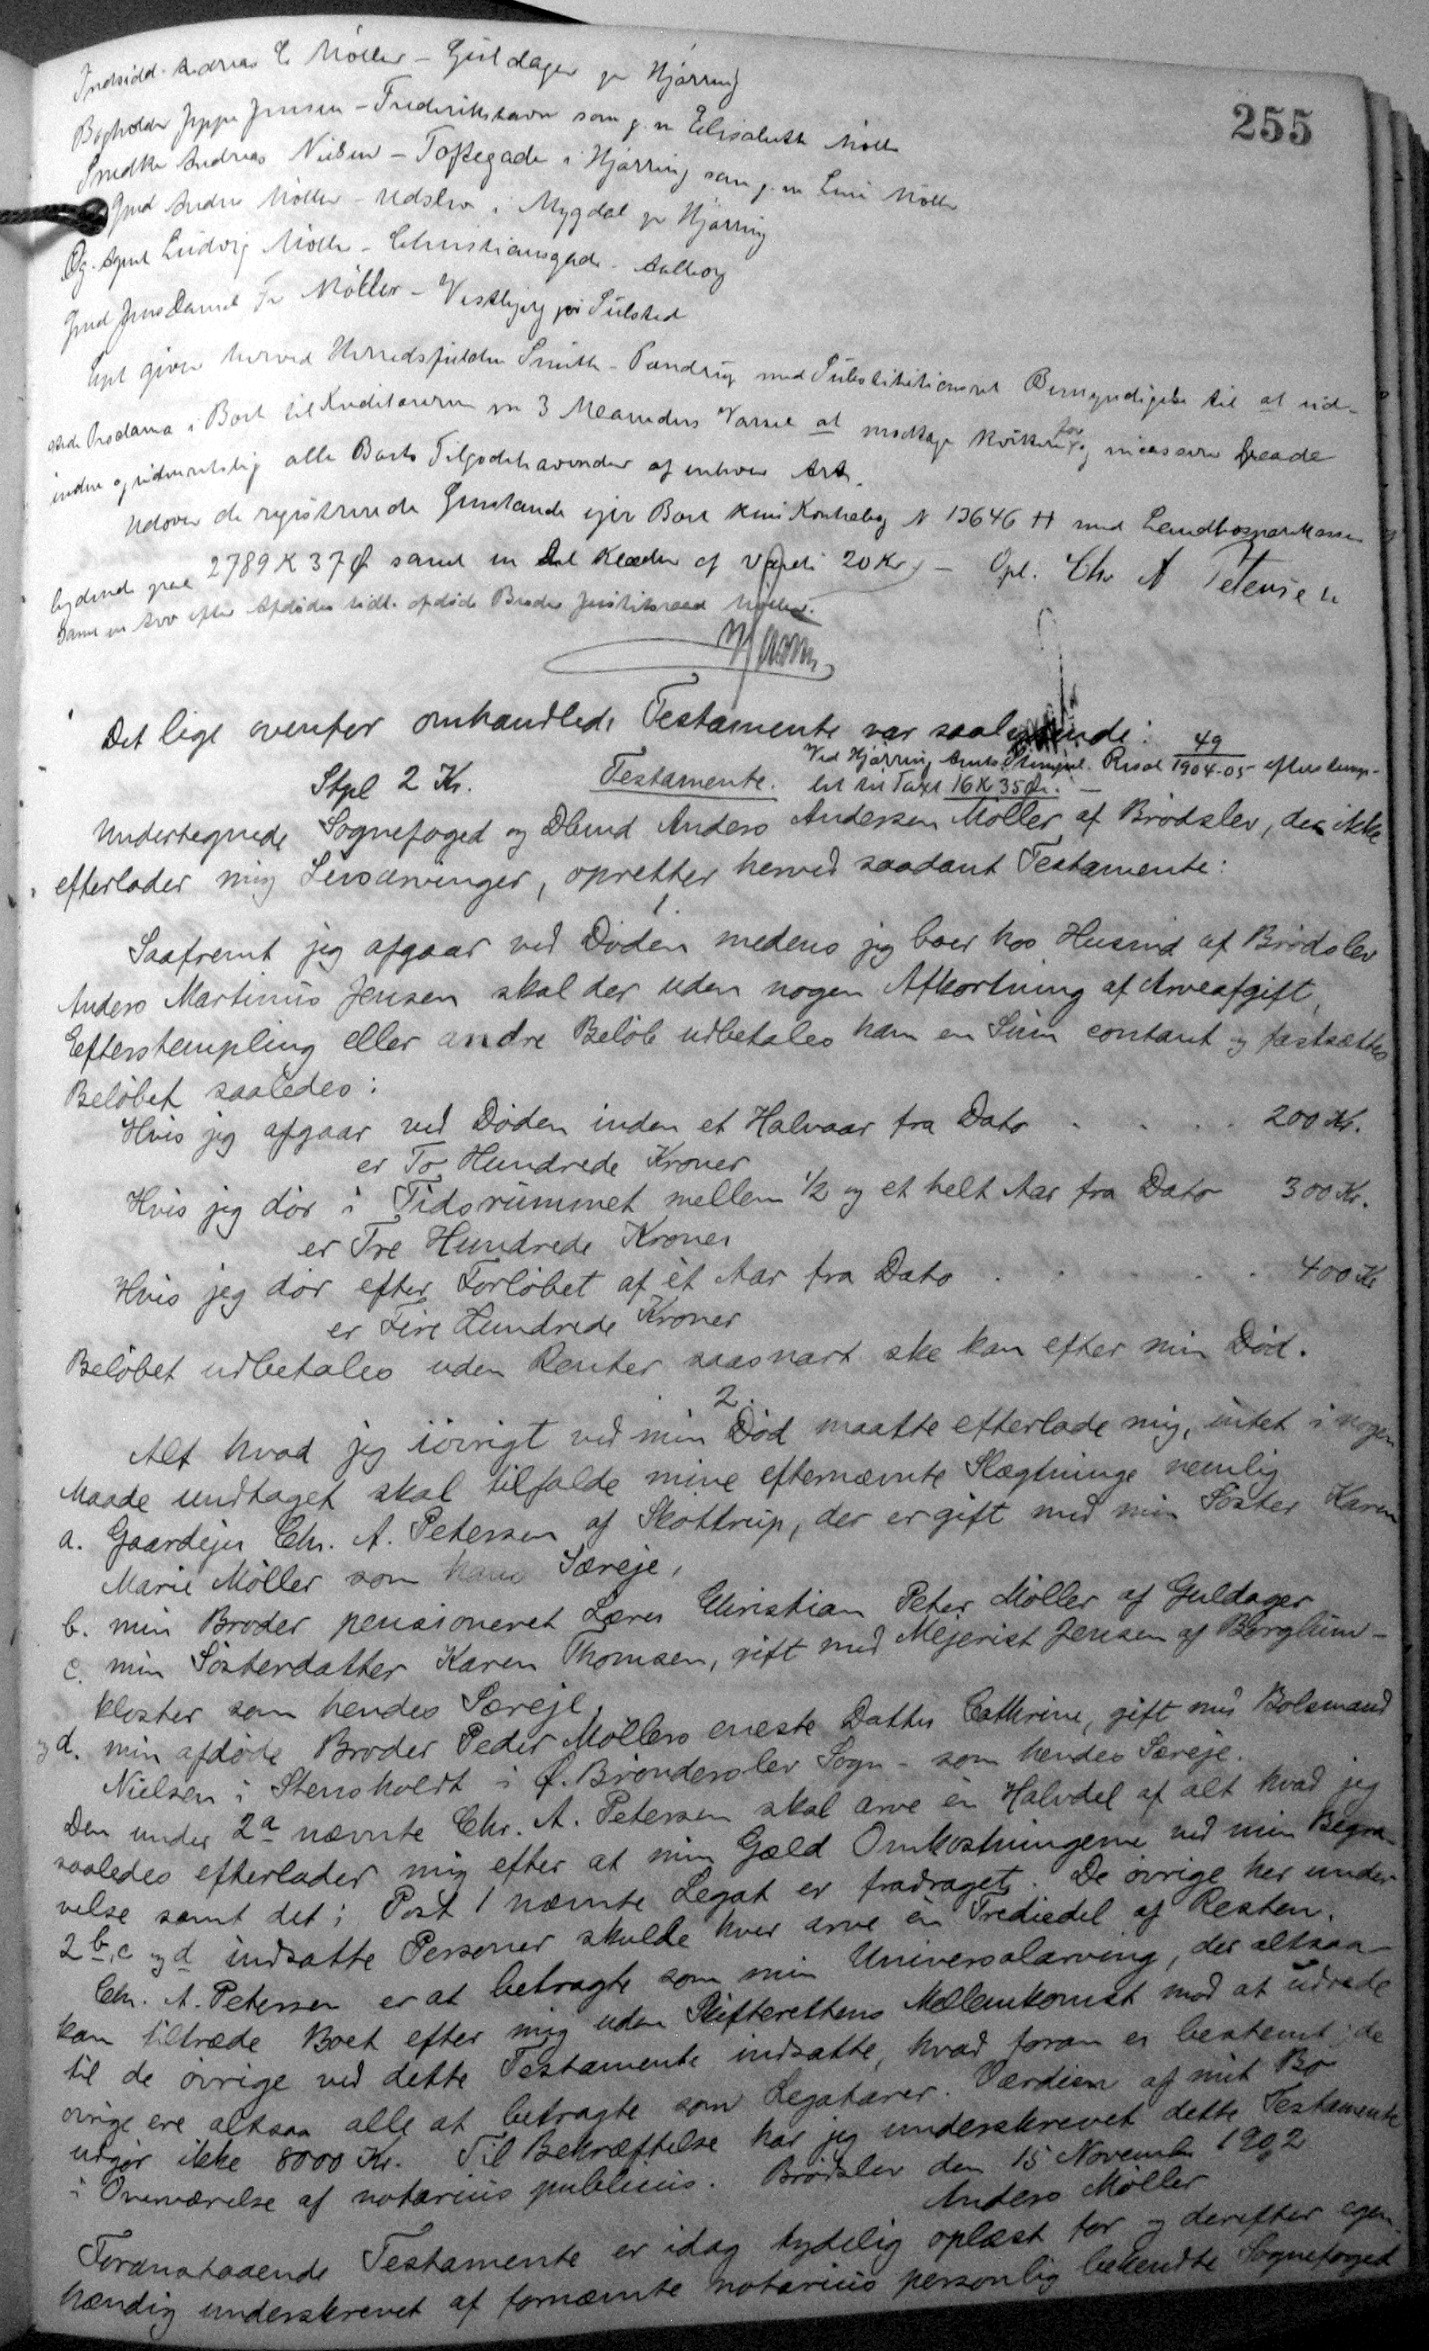 255
Indsidd. Andreas C Møller - Guldager pr Hjørring
Bogholder Jeppe Jensen - Frederikshavn som g. m Elisabeth Møller
Snedker Andreas Nielsen - Toftegade i Hjørring som g. m Line Møller
Gmd Andrs Møller - Udslev i Mygdal pr Hjørring
Og. Agent Ludvig Møller - Christiansgade - Aalborg
Gmd Jens Daniel Fr Møller - Vestbjerg pr Sulsted
Cpt giver herved Herredsfuldm Smith - Pandrup med Substitutionsret Bemyndigelse til at ud-
stede Proclama i Boet til Kreditorerne m 3 Maaneders Varsel at modtage kvittere for og incassere saavel
inden og udenretslig alle Boets Tilgodehavender af enhver Art.
Udover de registrerede Genstande ejer Boet kun Kontrabog N 13646 H med Landbosparekassen
lydende paa 2789 K 37 Ø samt en Del Klæder af Værdi 20 Kr - Opl. Chr A Petersen
Samt en Arv efter Afdødes tidl. afdøde Broder Justitsraad Møller.
Det lige ovenfor omhandlede Testamente var saalydende:
Ved Hjørring Amts Stempel. Resol 49/1904-05 efterstemp-
Stpl 2 Kr. Testamente. let til Taxt 16 Kr 35 Ør. -
Undertegnede Sognefoged og Dbmd Anders Andersen Møller af Brødslev, der ikke
efterlader mig Livsarvinger, opretter herved saadant Testamente:
1.
Saafremt jeg afgaar ved Døden medens jeg boer hos Husmd af Brødslev
Anders Martinus Jensen skal der uden nogen Afkortning af Arveafgift,
Efterstempling eller andre Beløb udbetales ham en Sum contant og fastsættes
Beløbet saaledes:
Hvis jeg afgaar ved Døden inden et Halvaar fra Dato . . . . 200 Kr.
er To Hundrede Kroner
Hvis jeg dør i Tidsrummet mellem 1/2 og et helt Aar fra Dato 300 Kr.
er Tre Hundrede Kroner
Hvis jeg dør efter Forløbet af ét Aar fra Dato . . . . . 400 Kr
er Fire Hundrede Kroner
Beløbet udbetales uden Renter saasnart ske kan efter min Død.
2.
Alt hvad jeg iøvrigt ved min Død maatte efterlade mig, intet i nogen
Maade undtaget skal tilfalde mine efternævnte Slægtninge nemlig
a. Gaardejer Chr. A. Petersen af Skottrup, der er gift med min Søster Karen
Marie Møller som hans Særeje,
b. min Broder pensioneret Lærer Christian Peter Møller af Guldager
c. min Søsterdatter Karen Thomsen, gift med Mejerist Jensen af Børglum-
kloster som hendes Særeje,
og d. min afdøde Broder Peder Møllers eneste Datter Cathrine, gift med Bolsmand
Nielsen i Stensholdt i Ø. Brønderslev Sogn - som hendes Særeje.
Den under 2a nævnte Chr. A. Petersen skal arve én Halvdel af alt hvad jeg
saaledes efterlader mig efter at min Gæld Omkostningerne ved min Begra-
velse samt det i Post 1 nævnte Legat er fradraget. De øvrige her under
2 b, c og d indsatte Personer skulde hver arve én Trediedel af Resten.
Chr. A. Petersen er at betragte som min Universalarving, der altsaa
kan tiltræde Boet efter mig uden Skifterettens Mellemkomst mod at udrede
til de øvrige ved dette Testamente indsatte, hvad foran er bestemt; de
øvrige ere altsaa alle at betragte som Legatarer. Værdien af mit Bo
udgør ikke 8000 Kr. Til Bekræftelse har jeg underskrevet dette Testamente
i Overværelse af notarius publicus. Brødslev den 15 Novembr 1902
Anders Møller
Foranstaaende Testamente er idag tydelig oplæst for og derefter egen-
hændig underskrevet af fornævnte notarius personlig bekendte Sognefoged